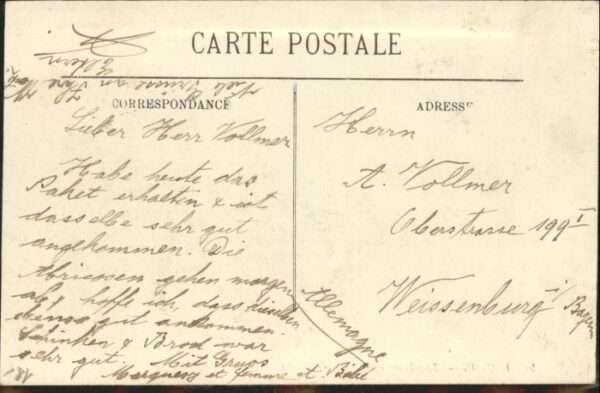 CARTE POSTALE
CORRESPONDANCE
Lieber Herr Vollmer
Habe heute das
Paket erhalten & ist
dasselbe sehr gut
angekommen. Die
Abricosen gehen morgen
ab & hoffe ich, dass dieselben
ebenso gut ankommen.
Schinken & Brod war
sehr gut. Mit Gruss
et femme et Bébé
ADRESSE
Herrn
A. Vollmer
Oberstrasse 199 I
Weissenburg i/ Bayern
Allemagne